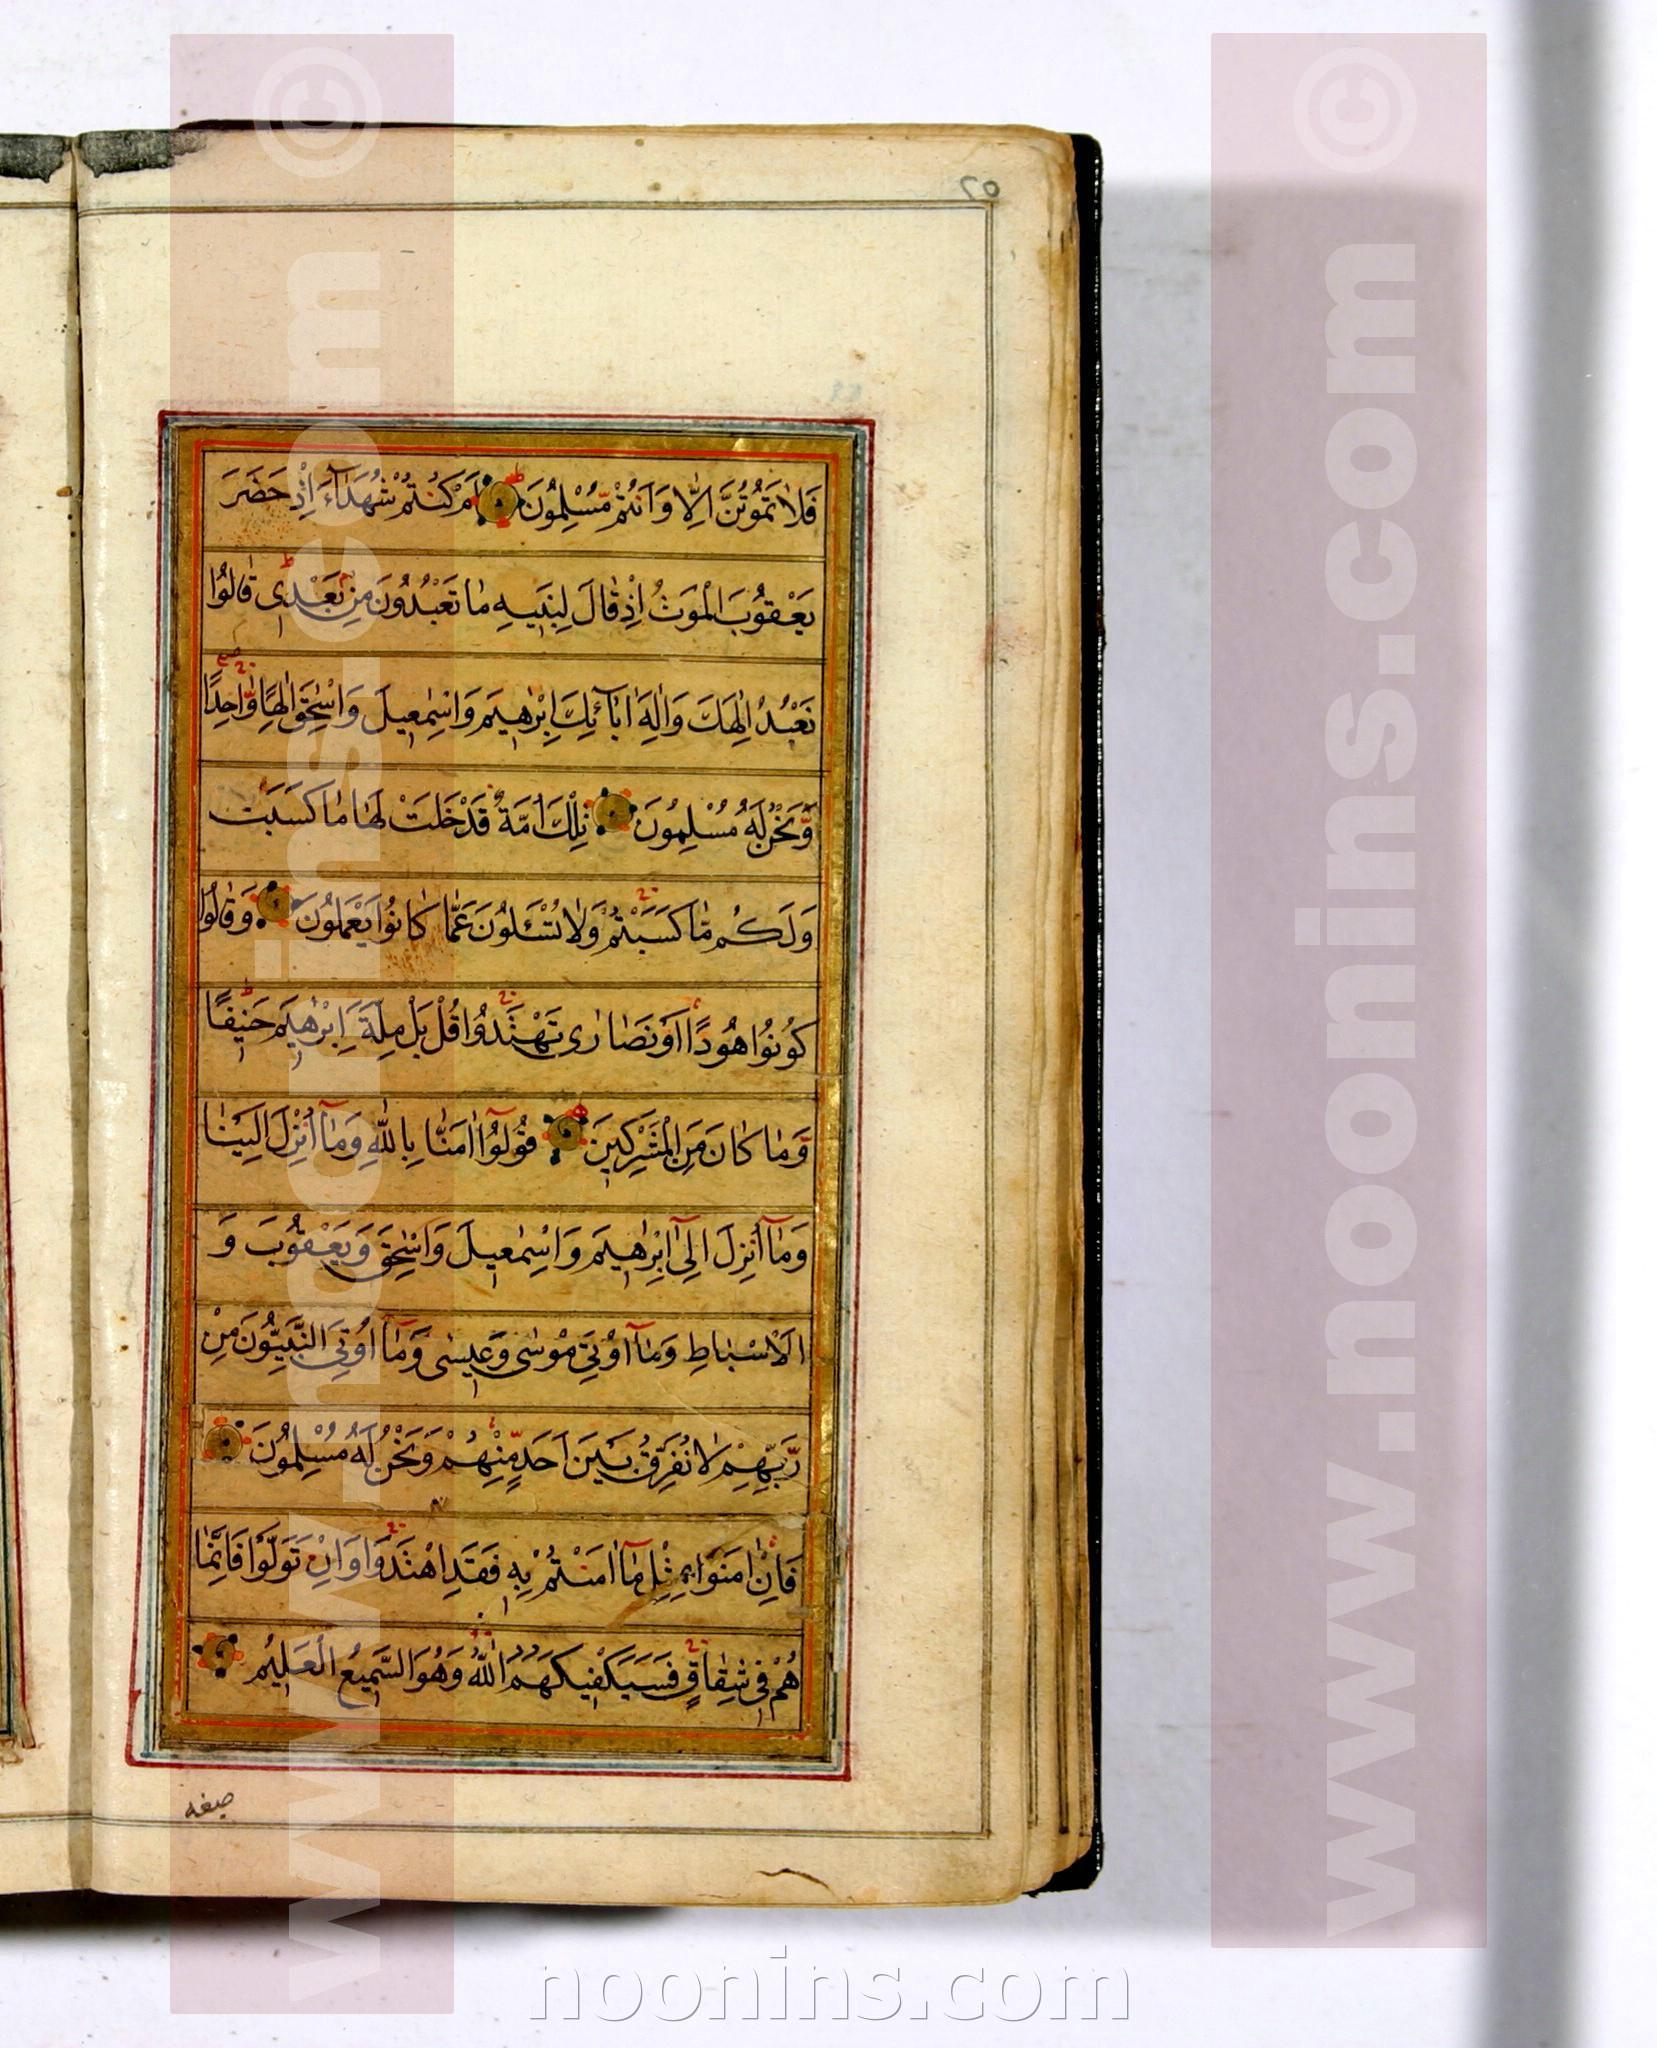 ۲۵
فَلَا تَمُوتُنَّ اِلَّا وَاَنْتُمْ مُسْلِمُونَ اَمْ كُنْتُمْ شُهَدَآءَ اِذْ حَضَرَ
يَعْقُوبَ الْمَوْتُ اِذْ قَالَ لِبَنِيهِ مَا تَعْبُدُونَ مِنْ بَعْدِى قَالُوا
نَعْبُدُ اِلٰهَكَ وَاِلٰهَ اٰبَآئِكَ اِبْرٰهِيمَ وَاِسْمٰعِيلَ وَاِسْحٰقَ اِلٰهًا وَاحِدًا
وَّنَحْنُ لَهُ مُسْلِمُونَ تِلْكَ اُمَّةٌ قَدْ خَلَتْ لَهَا مَا كَسَبَتْ
وَلَكُم مَّا كَسَبْتُمْ وَلَا تُسْئَلُونَ عَمَّا كَانُوا يَعْمَلُونَ وَقَالُوا
كُونُوا هُودًا اَوْ نَصَارٰى تَهْتَدُوا قُلْ بَلْ مِلَّةَ اِبْرٰهِيمَ حَنِيفًا
وَّمَا كَانَ مِنَ الْمُشْرِكِينَ قُولُوٓا اٰمَنَّا بِاللّٰهِ وَمَآ اُنْزِلَ اِلَيْنَا
وَمَآ اُنْزِلَ اِلٰٓى اِبْرٰهِيمَ وَاِسْمٰعِيلَ وَاِسْحٰقَ وَيَعْقُوبَ وَ
الْاَسْبَاطِ وَمَآ اُوتِىَ مُوسٰى وَعِيسٰى وَمَآ اُوتِىَ النَّبِيُّونَ مِنْ
رَّبِّهِمْ لَا نُفَرِّقُ بَيْنَ اَحَدٍ مِّنْهُمْ وَنَحْنُ لَهُ مُسْلِمُونَ
فَاِنْ اٰمَنُوا بِمِثْلِ مَآ اٰمَنْتُمْ بِهِ فَقَدِ اهْتَدَوْا وَاِنْ تَوَلَّوْا فَاِنَّمَا
هُمْ فِى شِقَاقٍ فَسَيَكْفِيكَهُمُ اللّٰهُ وَهُوَ السَّمِيعُ الْعَلِيمُ
صبغه
www.noonins.com ©
www.noonins.com ©
noonins.com